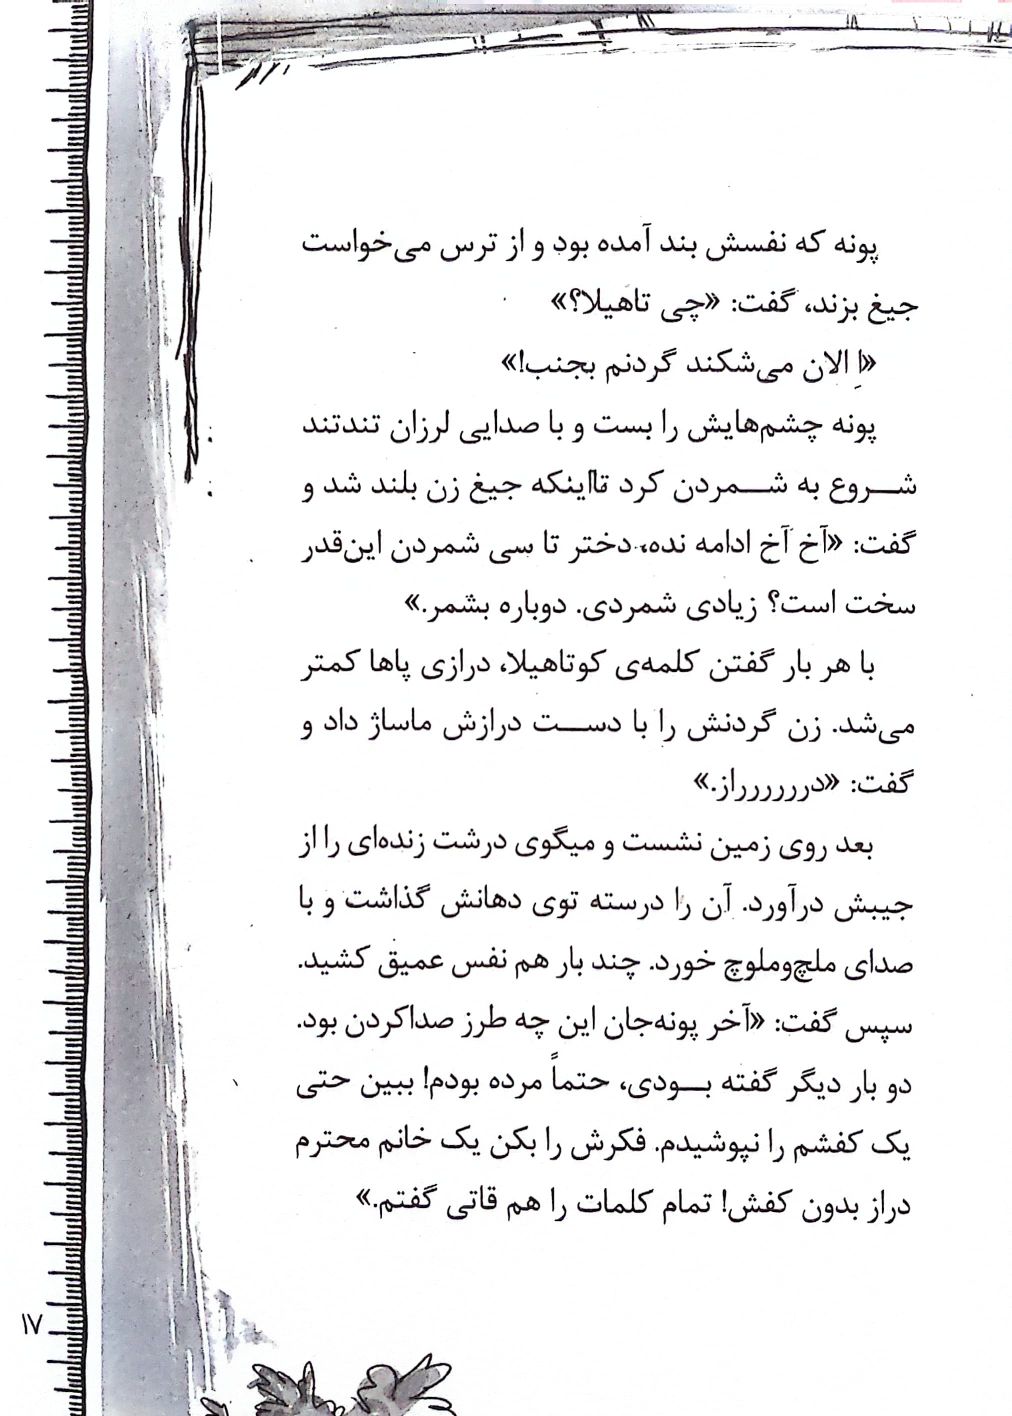 پونه که نفسش بند آمده بود و از ترس می‌خواست
جیغ بزند، گفت: «چی تاهیلا؟»
«اِ الان می‌شکند گردنم بجنب!»
پونه چشم‌هایش را بست و با صدایی لرزان تندتند
شـــروع به شـــمردن کرد تااینکه جیغ زن بلند شد و
گفت: «آخ آخ ادامه نده، دختر تا سی شمردن این‌قدر
سخت است؟ زیادی شمردی. دوباره بشمر.»
با هر بار گفتن کلمه‌ی کوتاهیلا، درازی پاها کمتر
می‌شد. زن گردنش را با دســـت درازش ماساژ داد و
گفت: «درررررراز.»
بعد روی زمین نشست و میگوی درشت زنده‌ای را از
جیبش درآورد. آن را درسته توی دهانش گذاشت و با
صدای ملچ‌وملوچ خورد. چند بار هم نفس عمیق کشید.
سپس گفت: «آخر پونه‌جان این چه طرز صداکردن بود.
دو بار دیگر گفته بـــودی، حتماً مرده بودم! ببین حتی
یک کفشم را نپوشیدم. فکرش را بکن یک خانم محترم
دراز بدون کفش! تمام کلمات را هم قاتی گفتم.»
۱۷